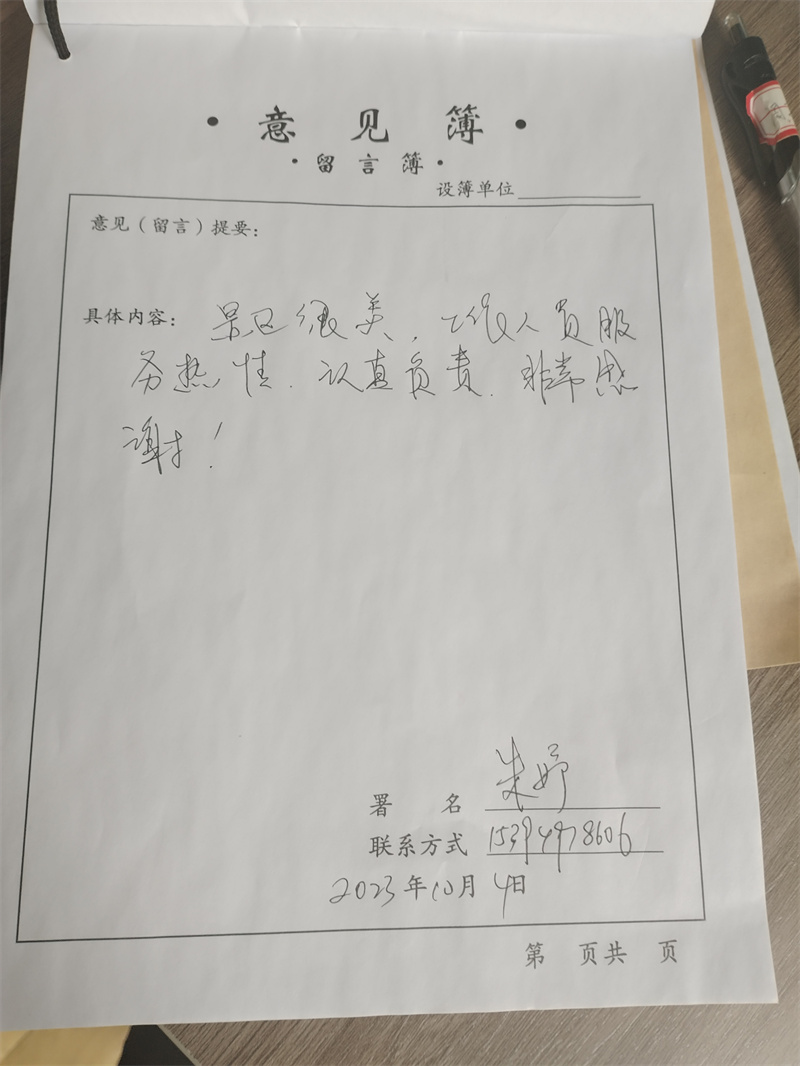 ·意见簿·
·留言簿·
设簿单位
意见（留言）提要：
具体内容：景区很美，工作人员服
务热情．认真负责．非常感
谢！
署 名 朱婷
联系方式 15394978606
2023年10月4日
第 页共 页